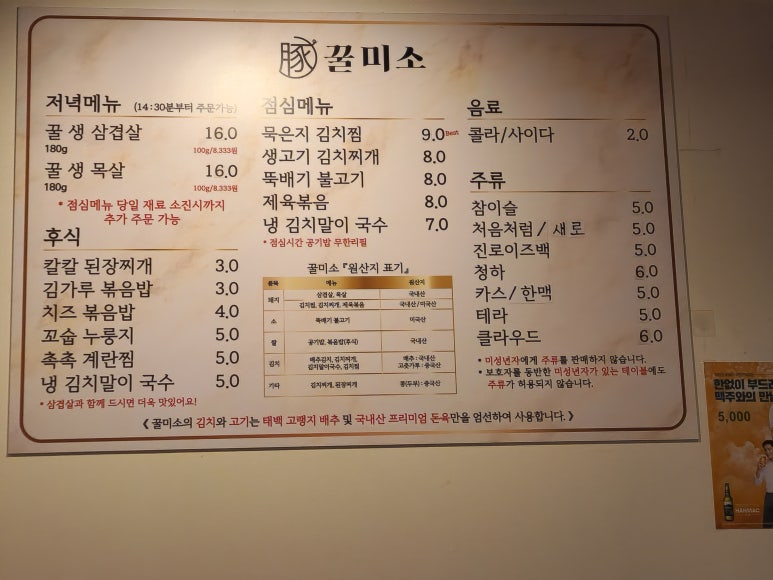 豚 꿀미소
저녁메뉴 (14:30분부터 주문가능)
꿀 생 삼겹살 16.0
180g 100g/8,333원
꿀 생 목살 16.0
180g 100g/8,333원
* 점심메뉴 당일 재료 소진시까지
추가 주문 가능
후식
칼칼 된장찌개 3.0
김가루 볶음밥 3.0
치즈 볶음밥 4.0
꼬숩 누룽지 5.0
촉촉 계란찜 5.0
냉 김치말이 국수 5.0
* 삼겹살과 함께 드시면 더욱 맛있어요!
점심메뉴
묵은지 김치찜 9.0 Best
생고기 김치찌개 8.0
뚝배기 불고기 8.0
제육볶음 8.0
냉 김치말이 국수 7.0
* 점심시간 공기밥 무한리필
꿀미소 『원산지 표기』
품목 메뉴 원산지
돼지 삼겹살, 목살 국내산
김치찜, 김치찌개, 제육볶음 국내산/미국산
소 뚝배기 불고기 미국산
쌀 공기밥, 볶음밥(후식) 국내산
김치 배추김치, 김치찌개, 배추 : 국내산
김치말이국수, 김치찜 고춧가루 : 중국산
기타 김치찌개, 된장찌개 콩(두부) : 중국산
음료
콜라/사이다 2.0
주류
참이슬 5.0
처음처럼 / 새로 5.0
진로이즈백 5.0
청하 6.0
카스/ 한맥 5.0
테라 5.0
클라우드 6.0
* 미성년자에게 주류를 판매하지 않습니다.
* 보호자를 동반한 미성년자가 있는 테이블에도
주류가 허용되지 않습니다.
《 꿀미소의 김치와 고기는 태백 고랭지 배추 및 국내산 프리미엄 돈육만을 엄선하여 사용합니다. 》
한없이 부드러
맥주와의 만
5,000
HANMAC